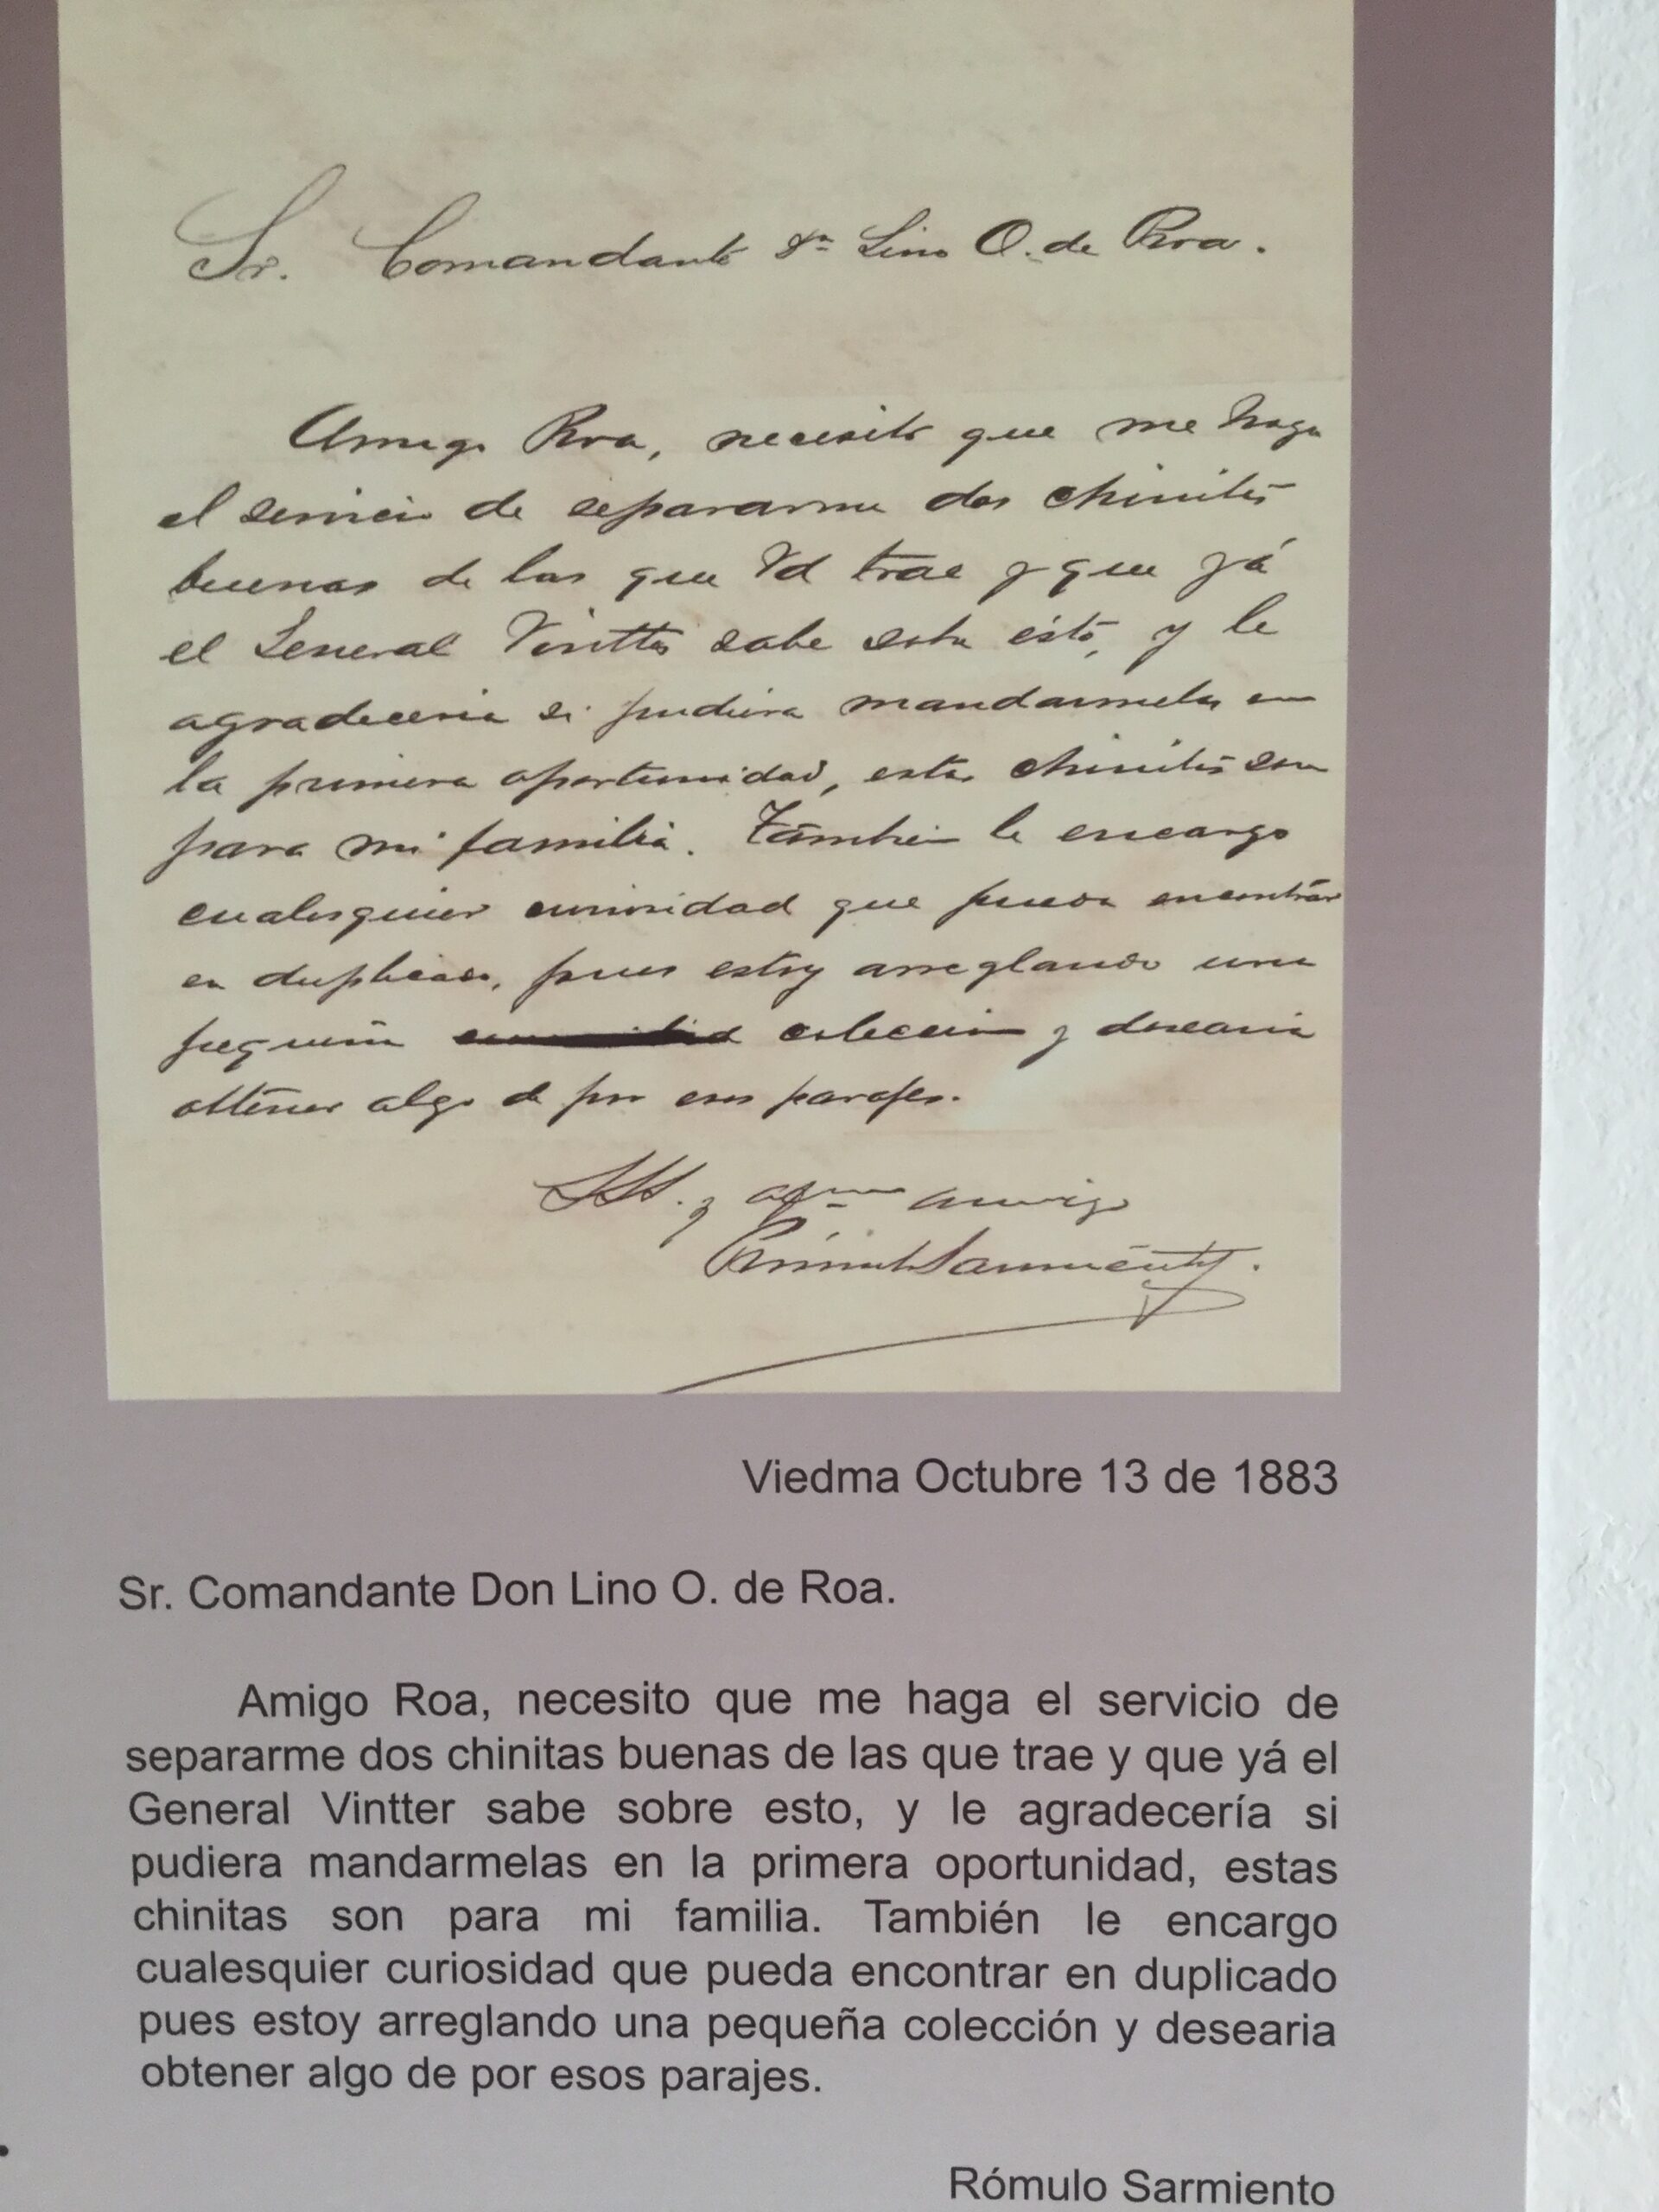 Sr. Comandante Dn Lino O. de Roa.
Amigo Roa, necesito que me haga
el servicio de separarme dos chinitas
buenas de las que Vd trae y que yá
el General Vintter sabe sobre ésto, y le
agradeceria si pudiera mandarmelas en
la primera oportunidad, estas chinitas son
para mi familia. Tambien le encargo
cualesquier curiosidad que pueda encontrar
en duplicado, pues estoy arreglando una
pequeña coleccion y desearia
obtener algo de por esos parajes.
SSS. y afmo amigo
Rómulo Sarmiento.
Viedma Octubre 13 de 1883
Sr. Comandante Don Lino O. de Roa.
Amigo Roa, necesito que me haga el servicio de
separarme dos chinitas buenas de las que trae y que yá el
General Vintter sabe sobre esto, y le agradecería si
pudiera mandarmelas en la primera oportunidad, estas
chinitas son para mi familia. También le encargo
cualesquier curiosidad que pueda encontrar en duplicado
pues estoy arreglando una pequeña colección y desearia
obtener algo de por esos parajes.
Rómulo Sarmiento